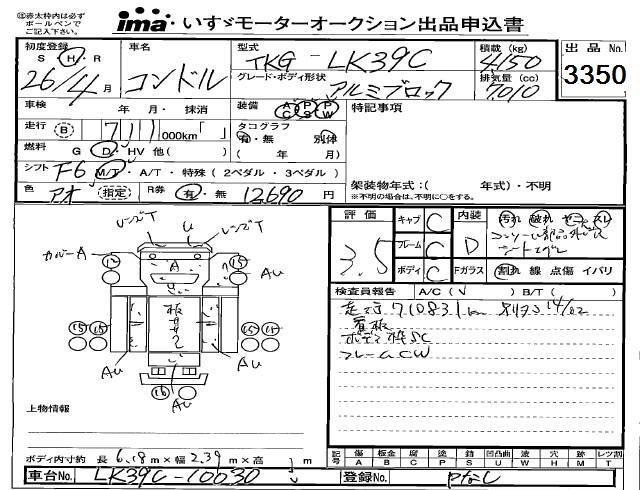 ※赤太枠内は必ず
ボールペンで
ご記入下さい。
ima いすゞモーターオークション出品申込書
初度登録
S H R
26/4月
車名
コンドル
型式
TKG-LK39C
グレード・ボディ形状
アルミブロック
積載(kg)
4150
排気量(cc)
7010
出品No.
3350
車検 年 月・抹消
走行 B 711 000km「 」
燃料 G D HV 他( )
シフト F6 M/T・A/T・特殊(2ペダル・3ペダル)
色 アオ 指定 R券 有・無 12,690 円
装備 AC PS PW
タコグラフ
有・無 別体
( 年 月)
特記事項
架装物年式:( 年式)・不明
※不明の場合は、不明に○をする。
評価 3.5
キャブ C
フレーム C
ボディ C
内装 D
汚れ 破れ ヤコゲ スレ
Fガラス 割れ 線 点傷 イバリ
検査員報告 A/C(√ ) B/T( )
走行 710831km
看板
フレームCW
カバーA
U
A
12
15
AU
15
15
15
15
AU
AU
16
AU
上物情報
ボディ内寸約 長 6.18m×幅 2.39m×高 m
車台No. LK39C-10030
登録No. Pなし
記号 傷A 板金B 腐C 塗P 錆S 凹凸曲U 波W 穴H 跡M レンズ割T